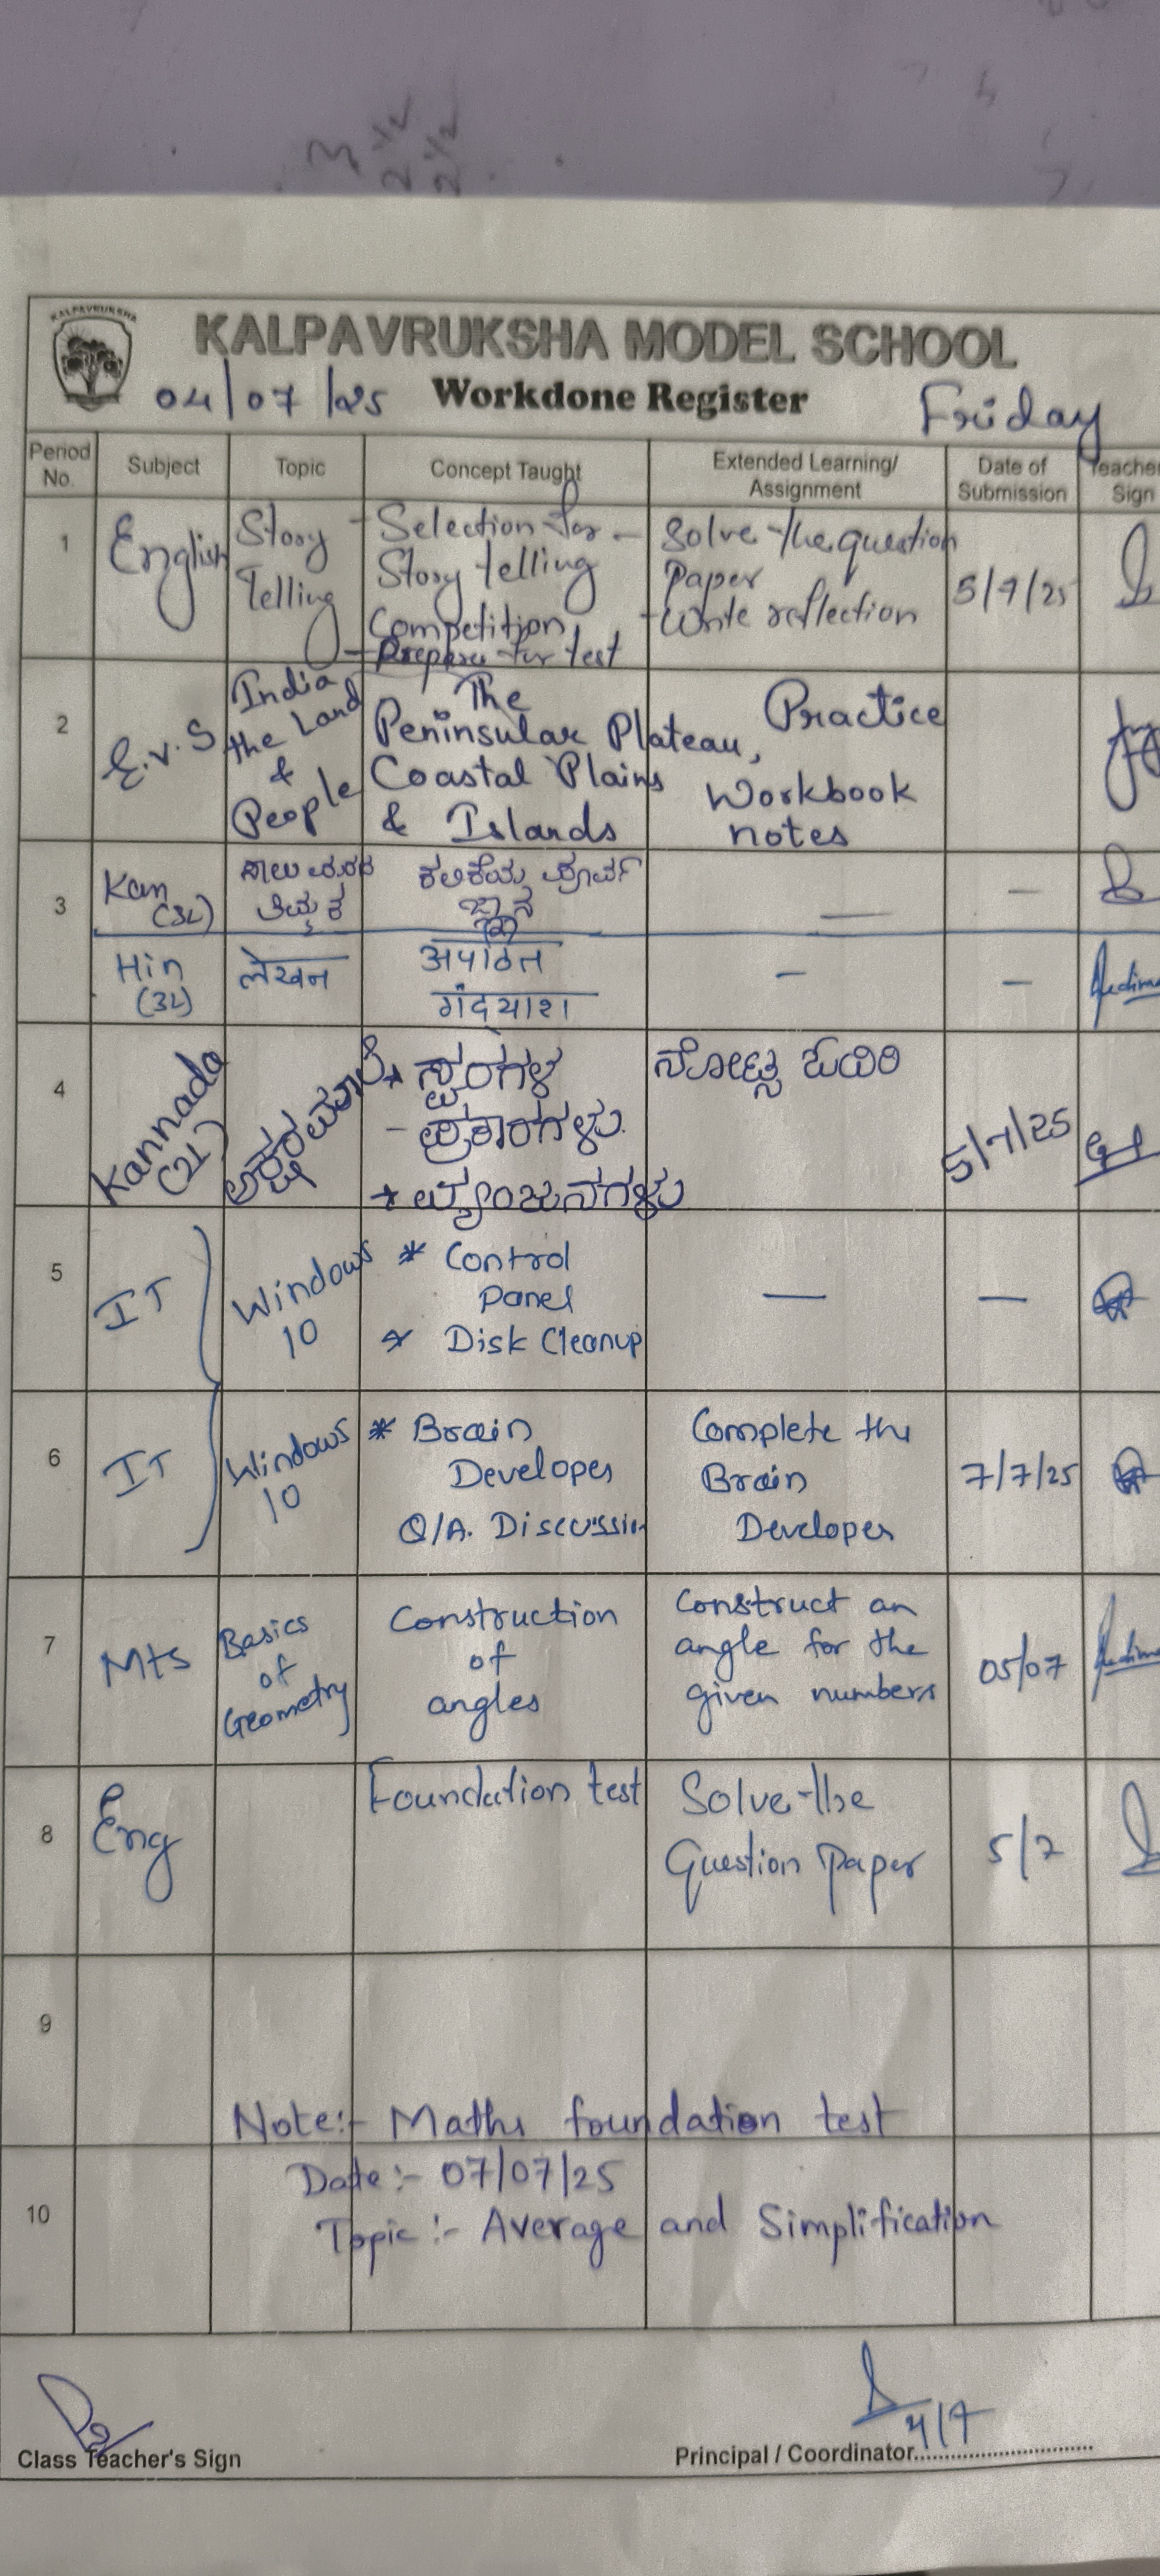 KALPAVRUKSHA
KALPAVRUKSHA MODEL SCHOOL
04/07/25 Workdone Register Friday
Period No. Subject Topic Concept Taught Extended Learning/ Assignment Date of Submission Teacher Sign
1 English Story Telling
- Selection for Story telling Competition,
- Prepare for test
- Solve the question Paper
- Write reflection
5/7/25
2 E.V.S India the Land & People
The Peninsular Plateau, Coastal Plains & Islands
Practice Workbook notes
3 Kan (3L)
ಕಲಿಕೆಯ ಪೂರ್ವ ಜ್ಞಾನ
— —
Hin (3L) लेखन
अपठित गंद्याश
- —
4 Kannada (2L) ಅಕ್ಷರಮಾಲೆ
* ಸ್ವರಗಳ
- ಪ್ರಕಾರಗಳು.
* ವ್ಯಂಜನಗಳು
ನೋಟ್ಸ್ ಓದಿರಿ
5/7/25
5 IT Windows 10
* Control Panel
* Disk Cleanup
— —
6 IT Windows 10
* Brain Developer
Q/A. Discussion
Complete the Brain Developer
7/7/25
7 Mts Basics of Geometry
Construction of angles
Construct an angle for the given numbers
05/07
8 Eng Foundation test
Solve the Question Paper
5/7
9
Note:- Maths foundation test
10
Date:- 07/07/25
Topic:- Average and Simplification
4/7
Class Teacher's Sign Principal / Coordinator